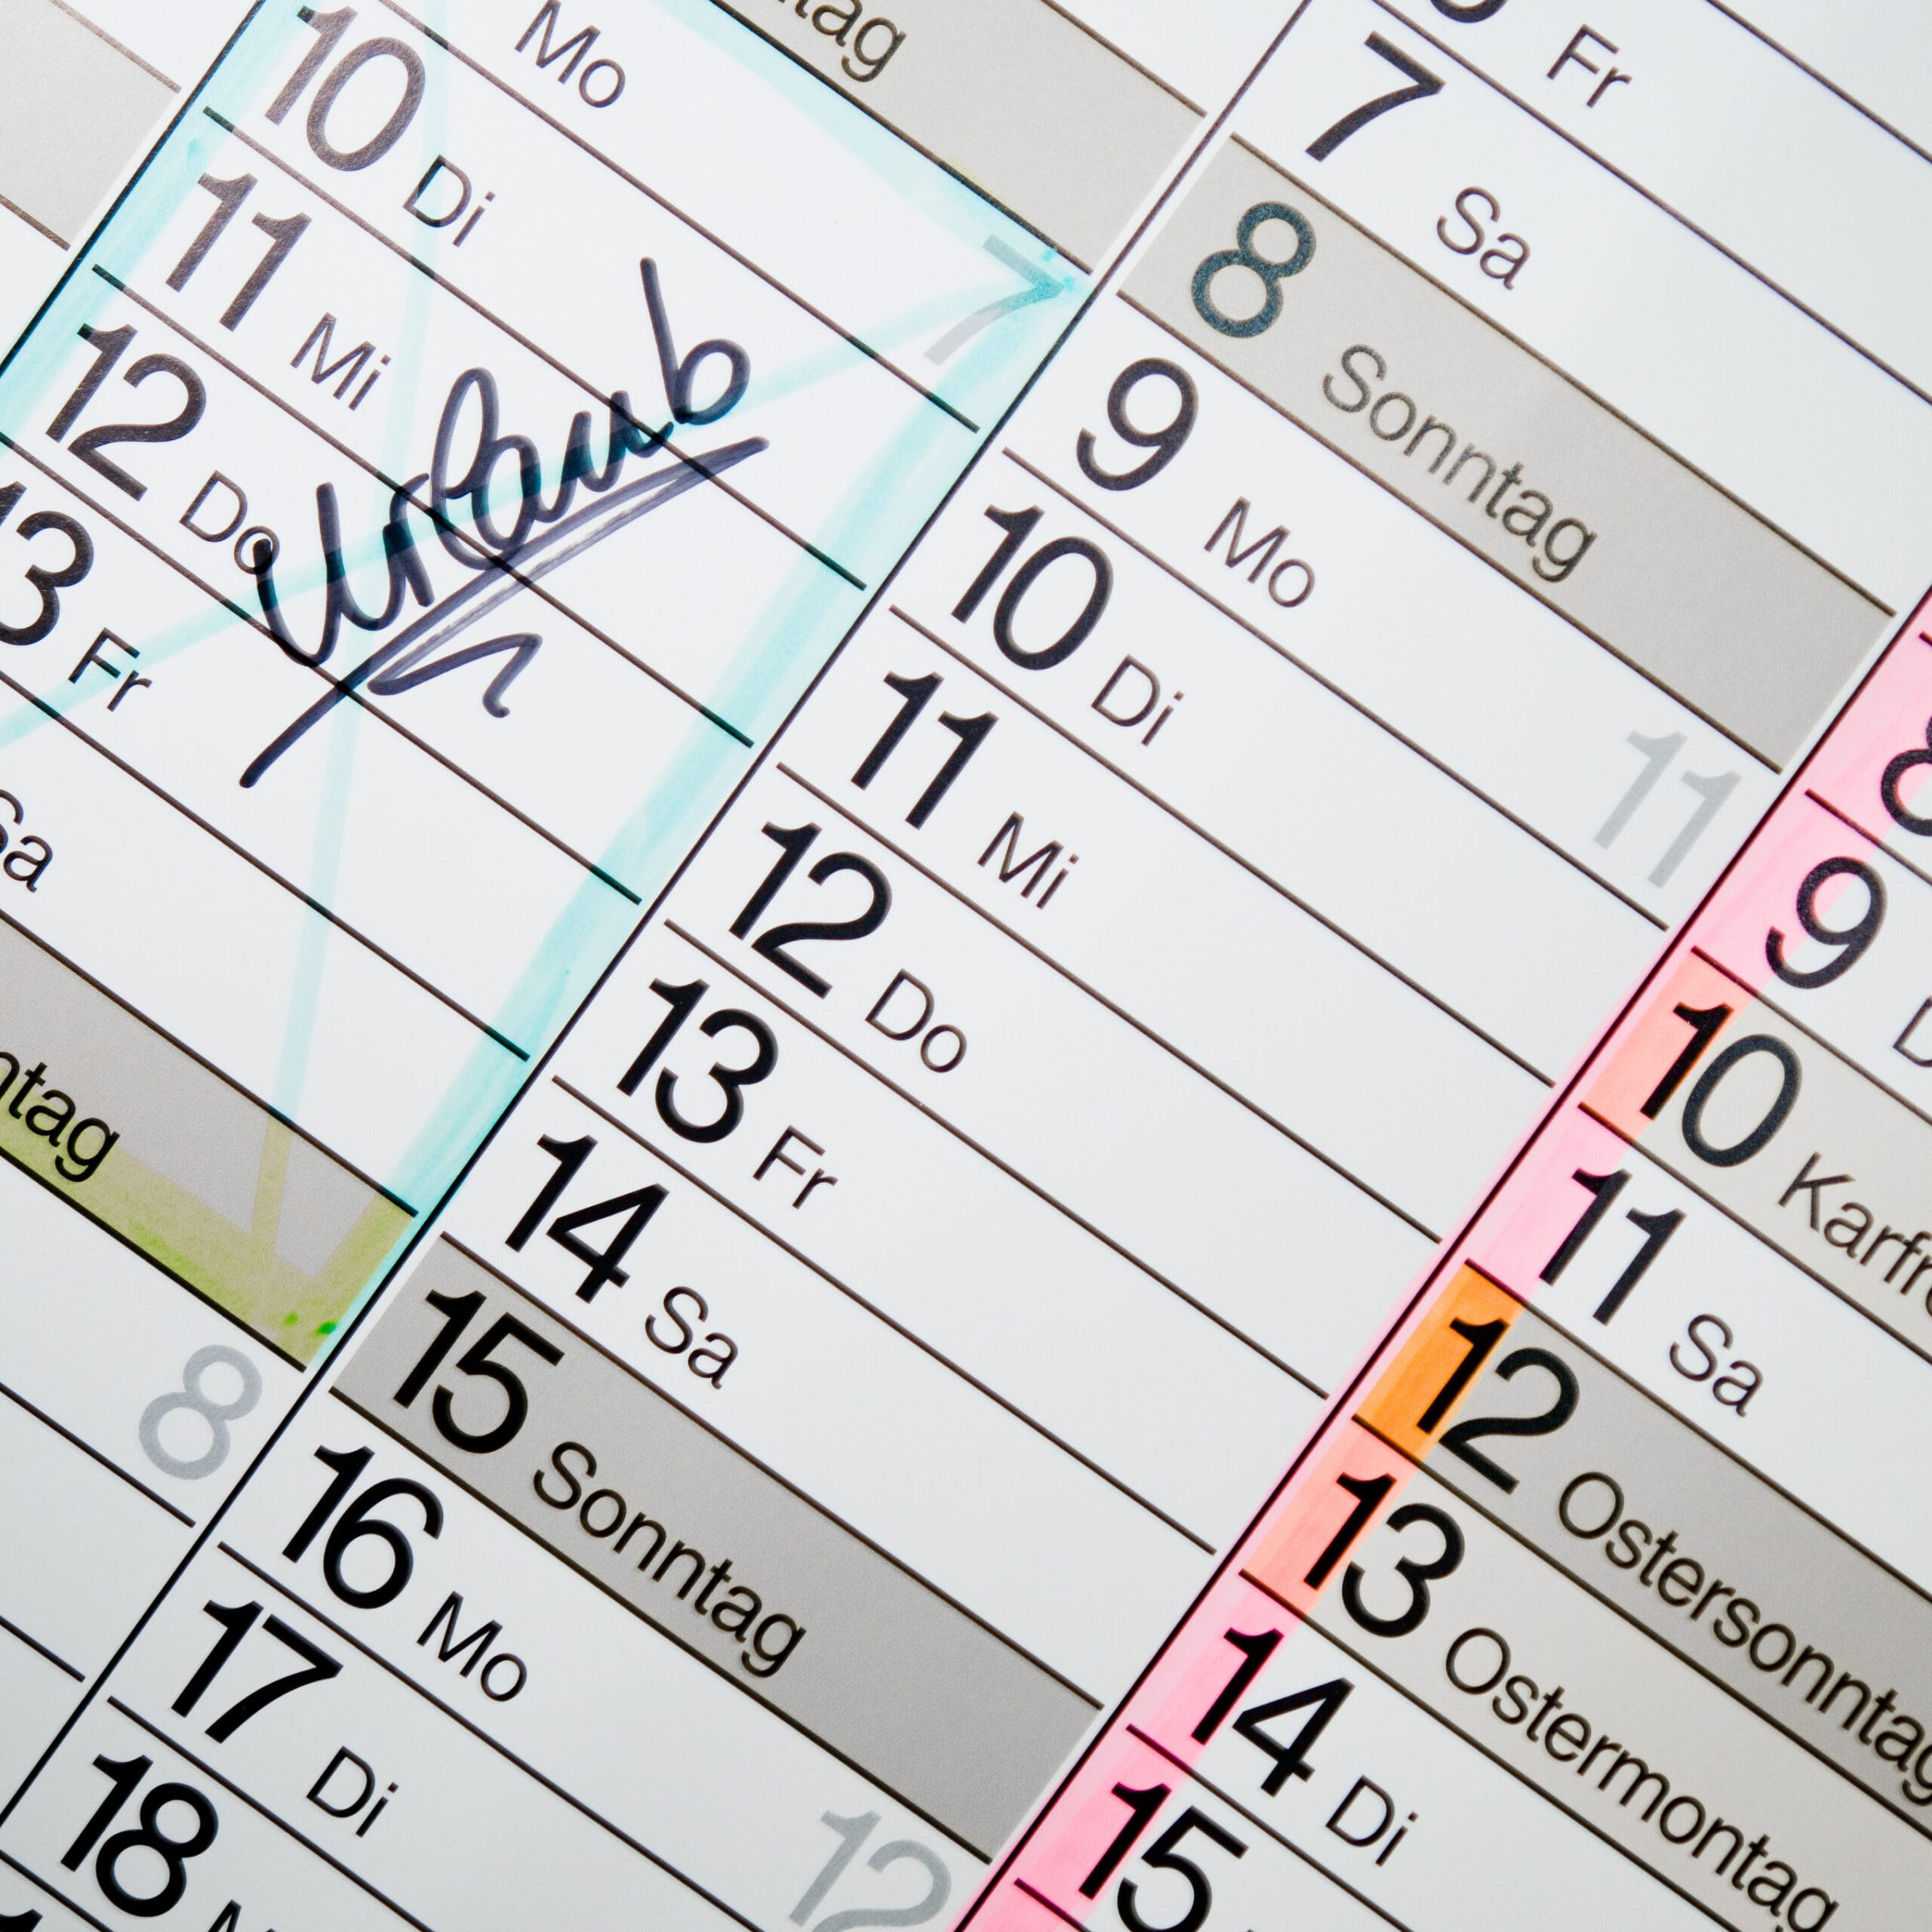 Mo
7
10 Di
11 Mi
12 Do
13 Fr
Sa
Urlaub
8
Fr
7 Sa
8 Sonntag
9 Mo
11
10 Di
11 Mi
12 Do
13 Fr
14 Sa
15 Sonntag
16 Mo
12
17 Di
18
8
9
10
11 Sa
12 Ostersonntag
13 Ostermontag
14 Di
15